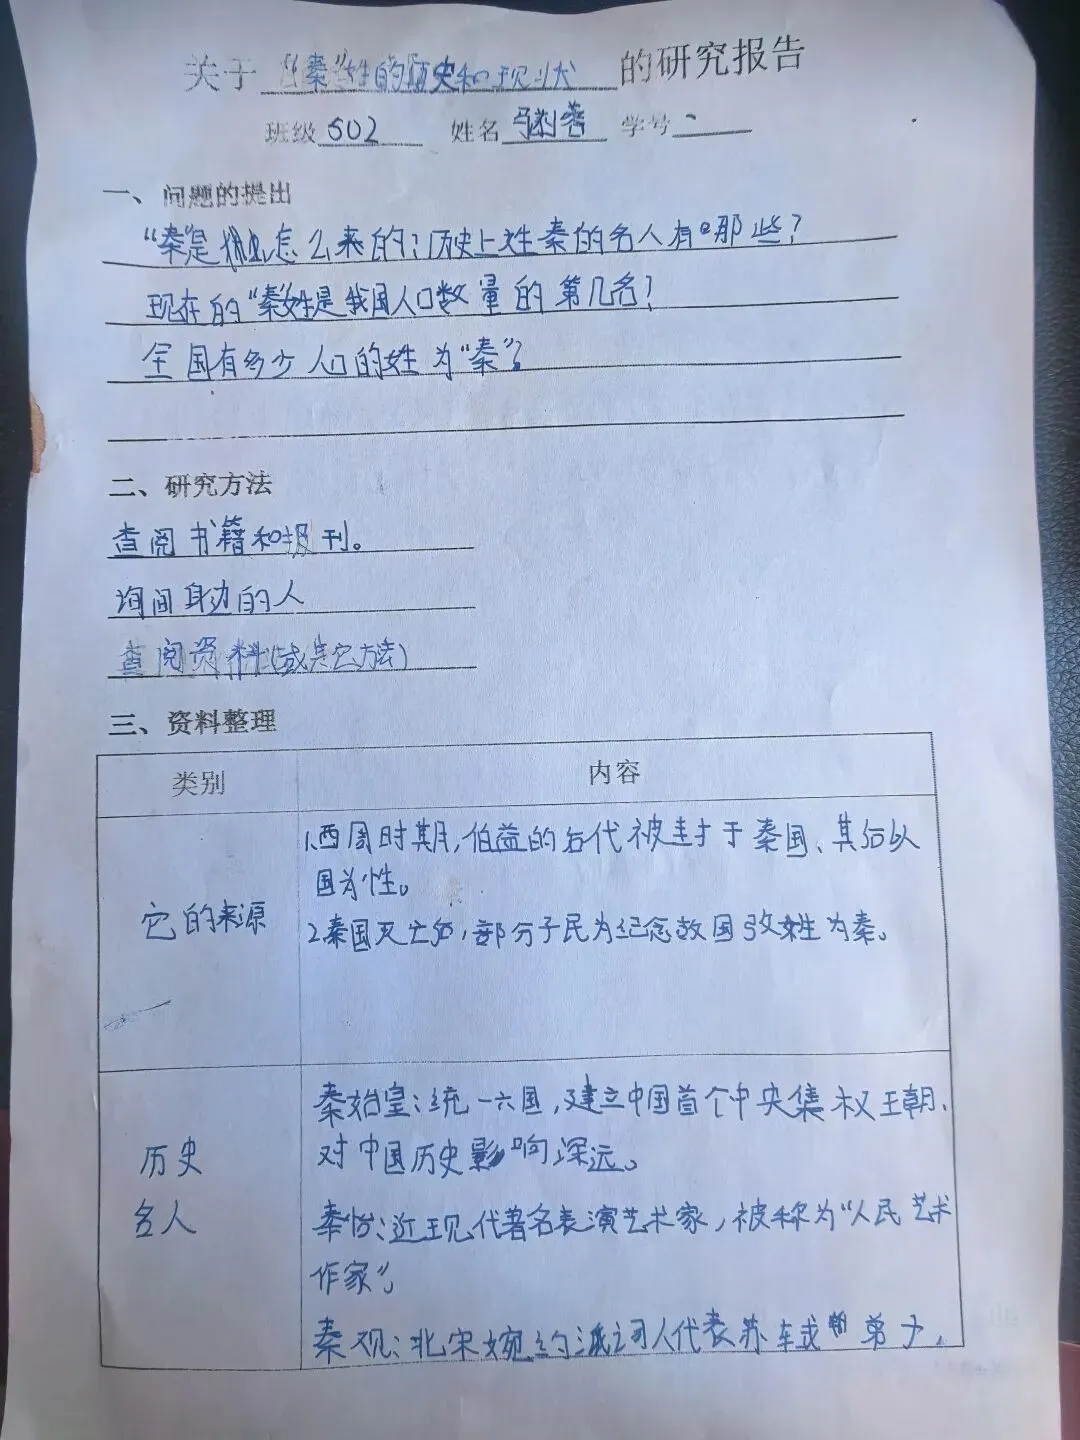 关于“秦”姓的历史和现状的研究报告
班级 502 姓名 学号
一、问题的提出
“秦”是怎么来的?历史上姓秦的名人有那些?
现在的“秦”姓是我国人口数量的第几名?
全国有多少人口的姓为“秦”?
二、研究方法
查阅书籍和报刊。
询问身边的人
查阅资料(或其它方法)
三、资料整理
类别 内容
它的来源
1.西周时期,伯益的后代被封于秦国、其后以
国为性。
2.秦国灭亡后,部分子民为纪念故国改姓为秦。
历史
名人
秦始皇:统一六国,建立中国首个中央集权王朝、
对中国历史影响深远。
秦怡:近现代著名表演艺术家,被称为“人民艺术
作家”
秦观:北宋婉约派词人代表苏轼的弟子。